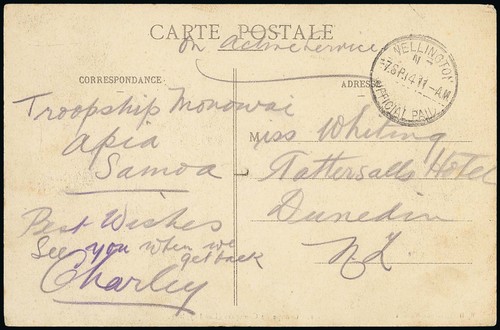 CARTE POSTALE
On Active Service
CORRESPONDANCE
ADRESSE
WELLINGTON
N Z
-7 SP 14 11-AM
OFFICIAL PAID
Troopship Monowai
Apia
Samoa
Best Wishes
See you when we
get back
Charley
Miss Whiting
Tattersalls Hotel
Dunedin
N.Z.